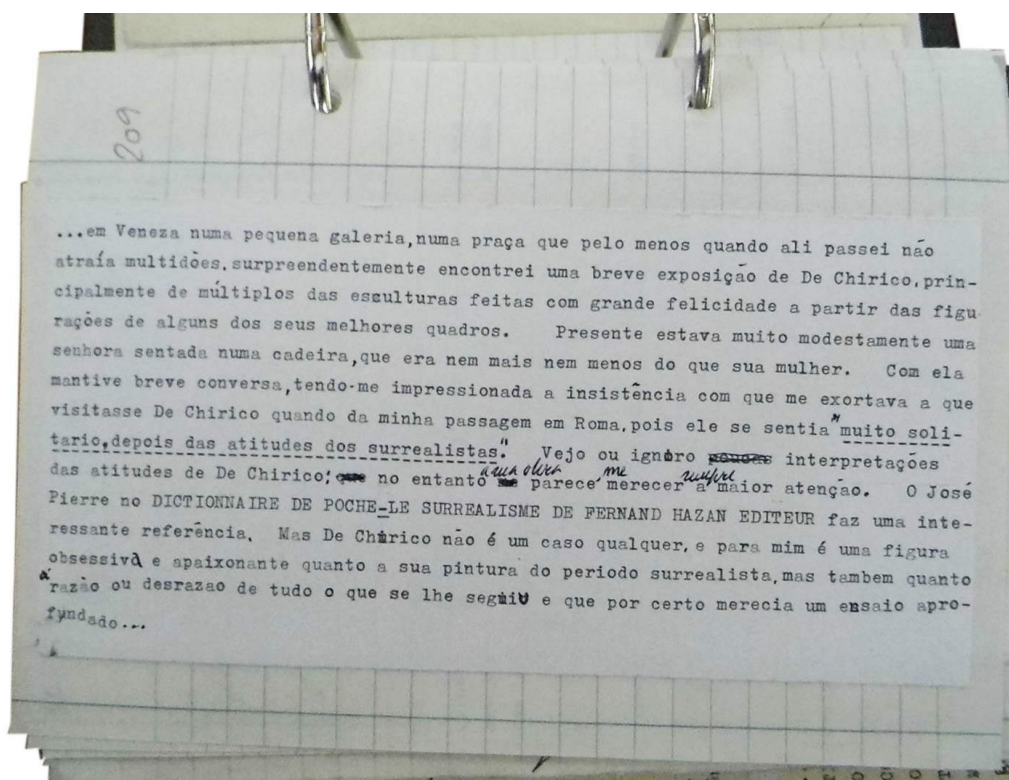 209
...em Veneza numa pequena galeria,numa praça que pelo menos quando ali passei não
atraía multidões,surpreendentemente encontrei uma breve exposição de De Chirico,prin-
cipalmente de múltiplos das esculturas feitas com grande felicidade a partir das figu
rações de alguns dos seus melhores quadros. Presente estava muito modestamente uma
senhora sentada numa cadeira,que era nem mais nem menos do que sua mulher. Com ela
mantive breve conversa,tendo-me impressionada a insistência com que me exortava a que
visitasse De Chirico quando da minha passagem em Roma,pois ele se sentia "muito soli-
tario,depois das atitudes dos surrealistas." Vejo ou ignoro interpretações
das atitudes de De Chirico; no entanto a sua obra parece me merecer sempre a maior atenção. O José
Pierre no DICTIONNAIRE DE POCHE-LE SURREALISME DE FERNAND HAZAN EDITEUR faz uma inte-
ressante referência. Mas De Chirico não é um caso qualquer, e para mim é uma figura
obsessiva e apaixonante quanto a sua pintura do periodo surrealista,mas tambem quanto
à razão ou desrazao de tudo o que se lhe seguiu e que por certo merecia um ensaio apro-
fundado...